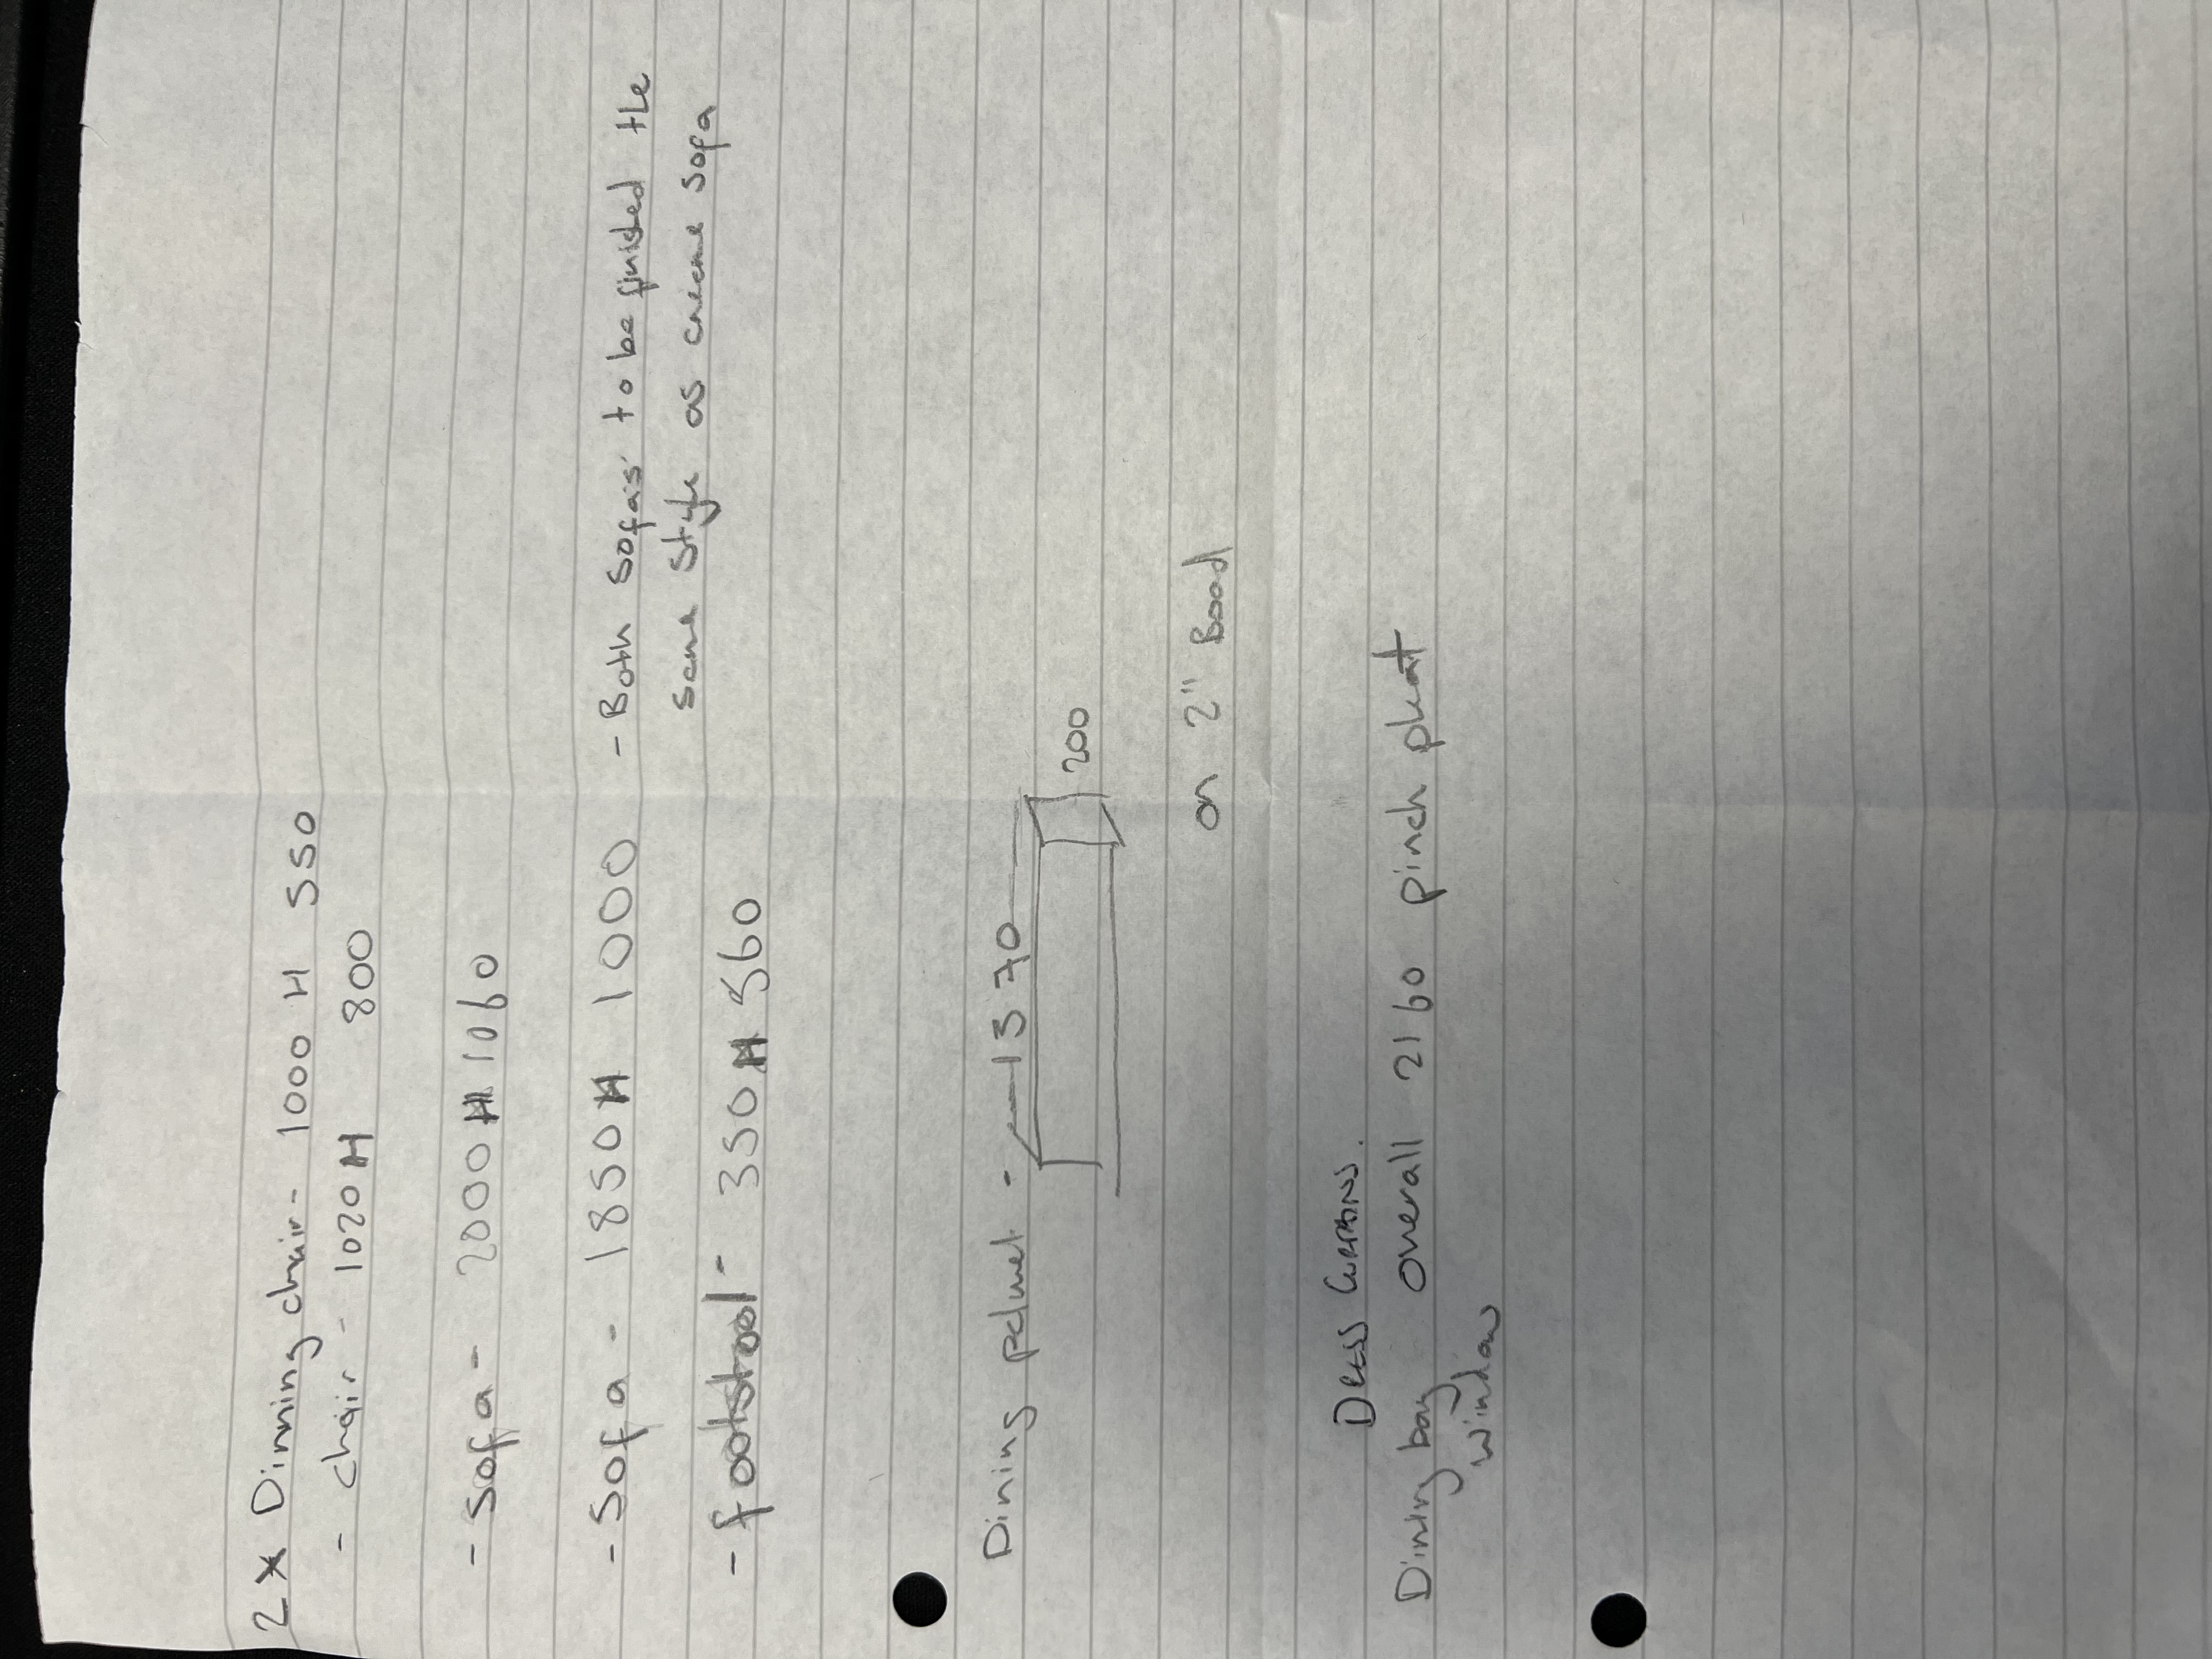 2 x Dinning chair - 1000 H 550
- chair - 1020 H 800
- Sofa - 2000 H 1060
- Sofa - 1850 H 1000 - Both Sofas' to be finished the
same style as creme sofa
- footstool - 350 H 560
Dining pelmet - 1370
200
on 2" Board
DRESS CURTAINS.
Dining bay overall 2160 pinch pleat
window